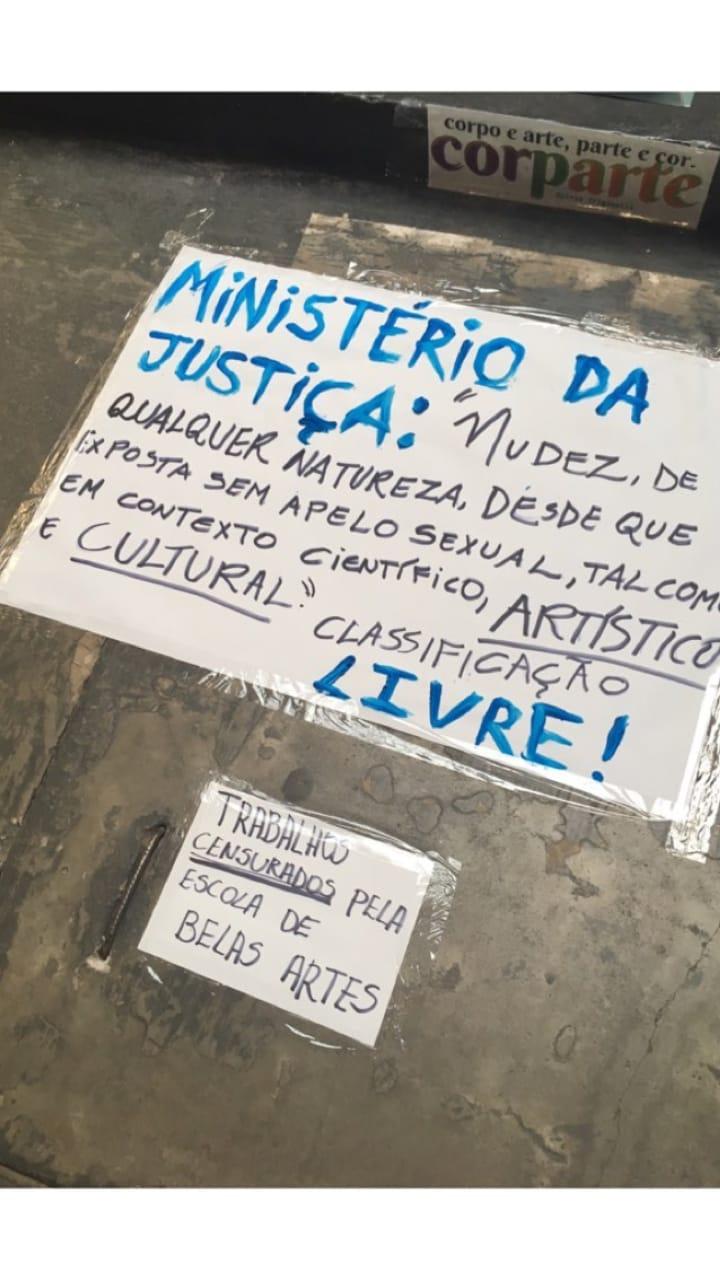 corpo e arte, parte e cor.
corparte
MINISTÉRIO DA
JUSTIÇA: "NUDEZ, DE
QUALQUER NATUREZA, DESDE QUE
EXPOSTA SEM APELO SEXUAL, TAL COMO
EM CONTEXTO CIENTÍFICO, ARTÍSTICO
E CULTURAL."
CLASSIFICAÇÃO
LIVRE!
TRABALHOS
CENSURADOS PELA
ESCOLA DE
BELAS ARTES